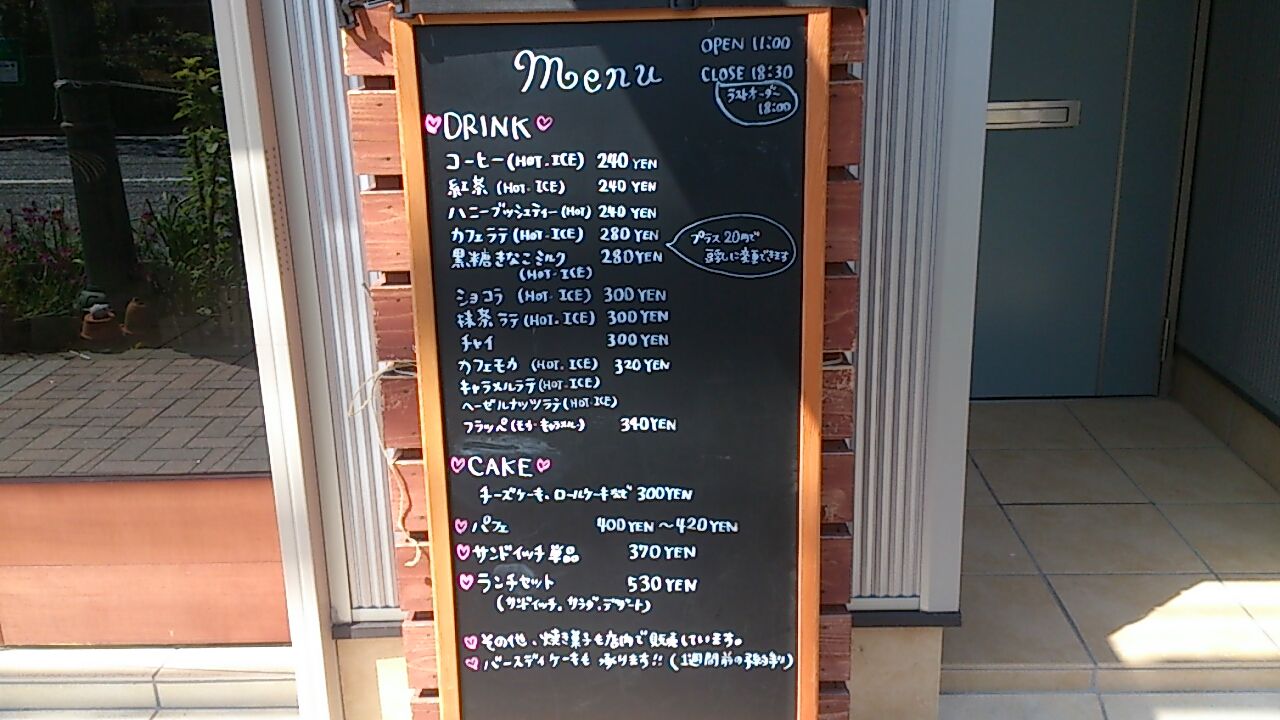 Menu
OPEN 11:00
CLOSE 18:30
ラストオーダー
18:00
DRINK
コーヒー(HOT.ICE) 240 YEN
紅茶 (HOT.ICE) 240 YEN
ハニーブッシュティー(HOT) 240 YEN
カフェラテ(HOT.ICE) 280 YEN
黒糖きなこミルク 280 YEN
(HOT.ICE)
プラス20円で
豆乳に変更できます
ショコラ (HOT.ICE) 300 YEN
抹茶ラテ(HOT.ICE) 300 YEN
チャイ 300 YEN
カフェモカ (HOT.ICE) 320 YEN
キャラメルラテ(HOT.ICE)
ヘーゼルナッツラテ(HOT.ICE)
フラッペ(モカ・キャラメル) 340 YEN
CAKE
チーズケーキ、ロールケーキなど 300 YEN
パフェ 400 YEN 〜 420 YEN
サンドイッチ単品 370 YEN
ランチセット 530 YEN
(サンドイッチ、サラダ、デザート)
その他、焼き菓子も店内で販売しています。
バースデイケーキも 承ります!! (1週間前の予約あり)